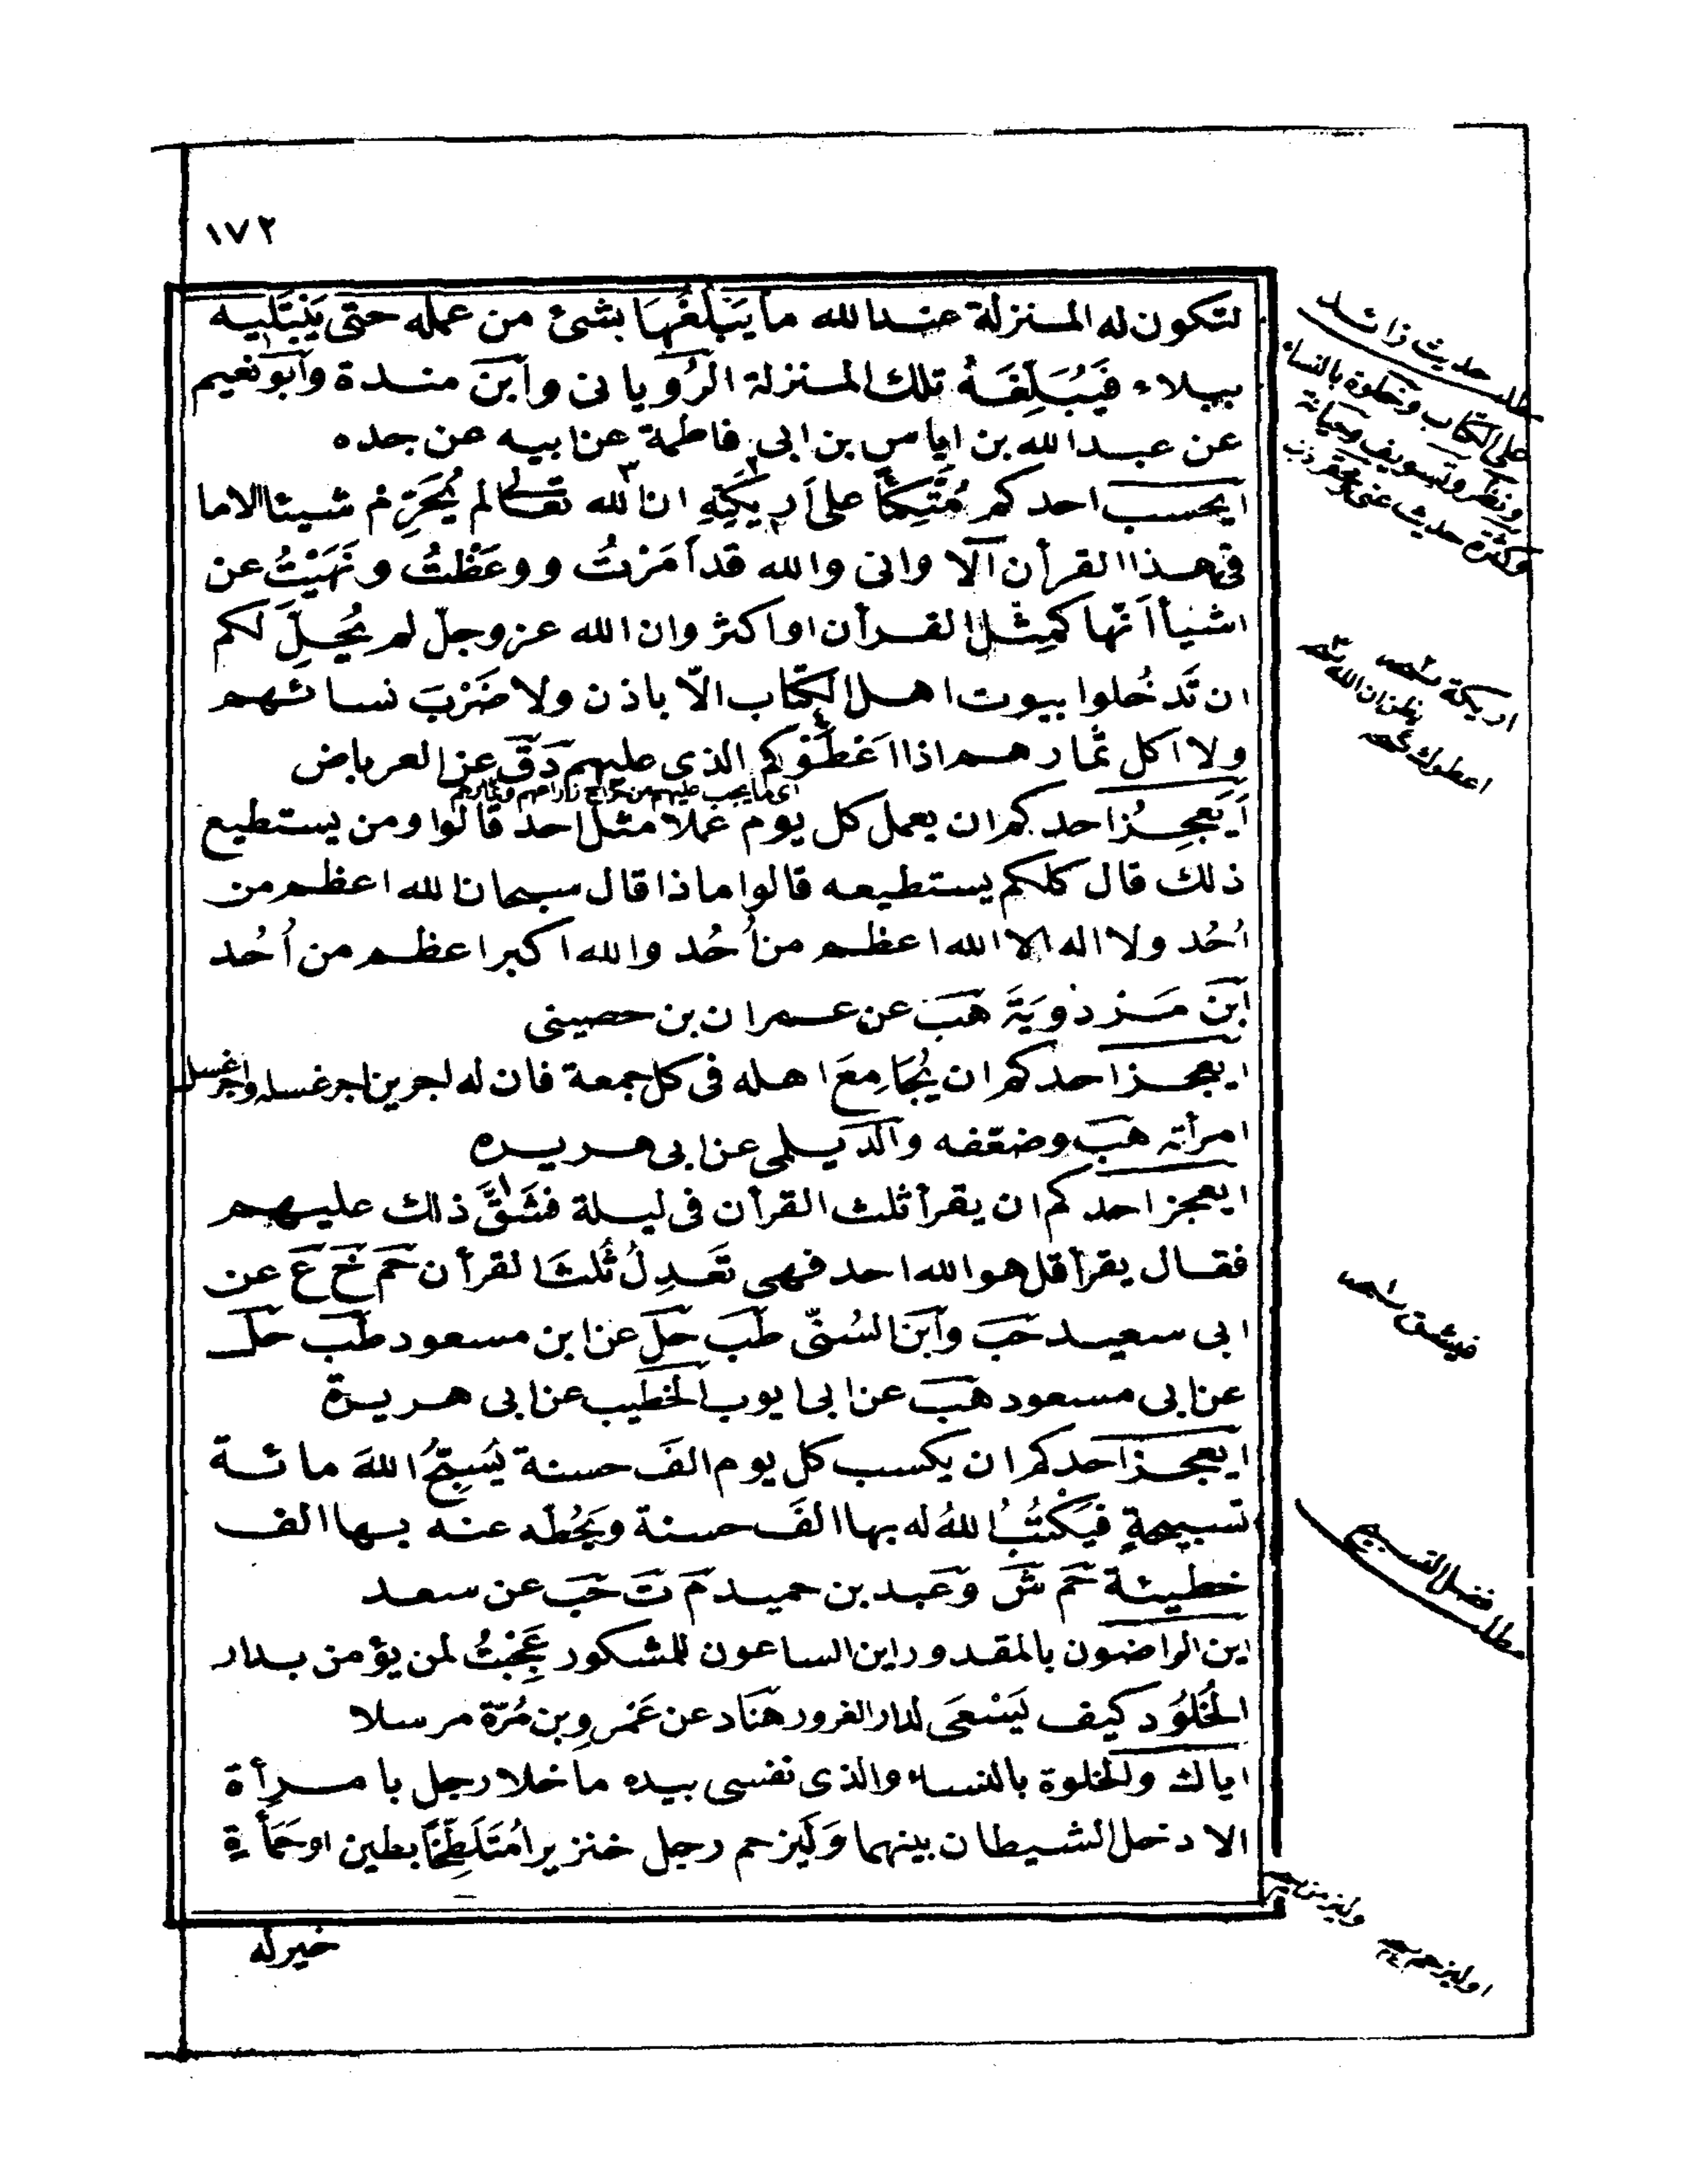 ١٧٢
لتكون له المنزلة عند الله ما يَبْلُغُهَا بشئ من عمله حتى يَبْتَلِيه
ببلاء فَيُبَلِّغَهُ تلك المنزلة الرُويانى وابن مندة وابو نعيم
عن عبد الله بن اياس بن ابى فاطمة عن ابيه عن جده
ايحسب احدكم مُتَّكِئًا على اَرِيكَتِهِ ان الله تعالى لم يُحَرِّمْ شيئا الا ما
فى هذا القرأن اَلَا وانى والله قد اَمَرْتُ ووعَظْتُ ونَهَيْتُ عن
اشيأ اَنّها كمِثْل القرأن او اكثر وان الله عز وجلّ لم يُحِلَّ لكم
ان تَدخُلوا بيوت اهل الكتاب الاّ باذن ولا ضَرْبَ نسائهم
ولا اكل ثمارهم اذا اَعْطَوْكم الذى عليهم دَقَ عن العرباض
اى ما يجب عليهم من
اَيَعجِزُ احدكم ان يعمل كل يوم عملا مثل احد قالوا ومن يستطيع
ذلك قال كلكم يستطيعه قالوا ماذا قال سبحان الله اعظم من
اُحُد ولا اله الا الله اعظم من اُحُد والله اكبر اعظم من اُحُد
ابن مَردُويَةَ هَب عن عمران بن حصينى
ايعجز احدكم ان يُجَامِعَ اهله فى كل جمعة فان له اجرين اجر غسله واجر غسل
امرأته هَب وضعّفه والديلمى عن ابى هريره
ايعجز احدكم ان يقرأ ثلث القرأن فى ليلة فشَقَّ ذلك عليهم
فقال يقرأ قل هو الله احد فهى تَعدِلُ ثُلثَ القرأن حَم خ ع عن
ابى سعيد حَب وابن السُنّى طَب حَل عن ابن مسعود طَب حَل
عن ابى مسعود هَب عن ابى ايوب الخطيب عن ابى هريرة
ايعجز احدكم ان يكسب كل يوم الفَ حسنة يُسَبِّحُ اللهَ مائة
تسبيحةٍ فيَكْتُبُ اللهُ له بها الفَ حسنة ويَحُطّه عنه بها الف
خطيئة حَم ش وعبد بن حميد م ت حَب عن سعد
اين الراضون بالمقدور اين الساعون للمشكور عَجِبْتُ لمن يؤمن بدار
الخُلُود كيف يَسْعَى لدار الغرور هناد عن عَمْرِو بن مُرّة مرسلا
اياك والخلوة بالنساء والذى نفسى بيده ما خلا رجل بامرأة
الا دخل الشيطان بينهما وَلَيَزحم رجل خنزيرا مُتَلَطِّخًا بطين او حَمْأةٍ
خير له
على الكتاب وخلوة بالنساء
اريكة
يظن ان الله
اعطوك
فيشق
مطلب فضل التسبيح